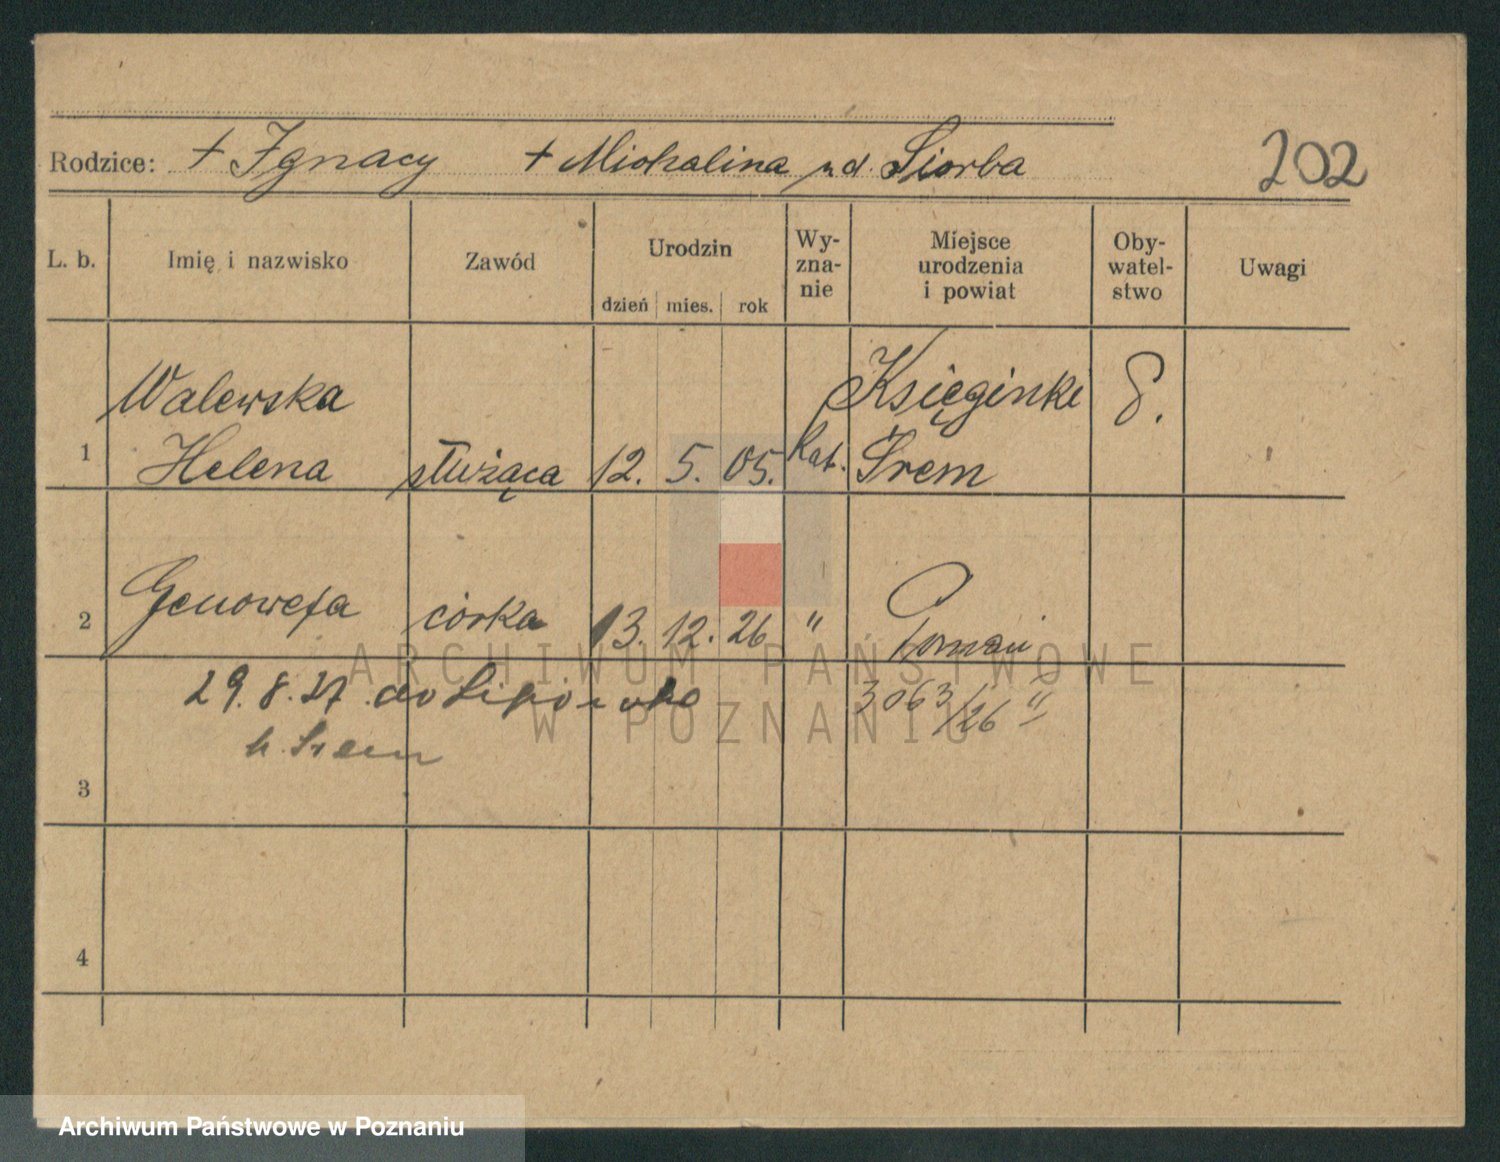 Rodzice: + Ignacy + Michalina ud. Siorba
202
L. b. Imię i nazwisko Zawód Urodzin dzień mies. rok Wy-zna-nie Miejsce urodzenia i powiat Oby-watel-stwo Uwagi
Walewska Księginki P.
1 Helena służąca 12. 5. 05. Kat. Śrem
2 Genowefa córka 13. 12. 26 " Poznań
29. 8. 27. do 3063/26 "
Śrem
3
4
ARCHIWUM PAŃSTWOWE
W POZNANIU
Archiwum Państwowe w Poznaniu